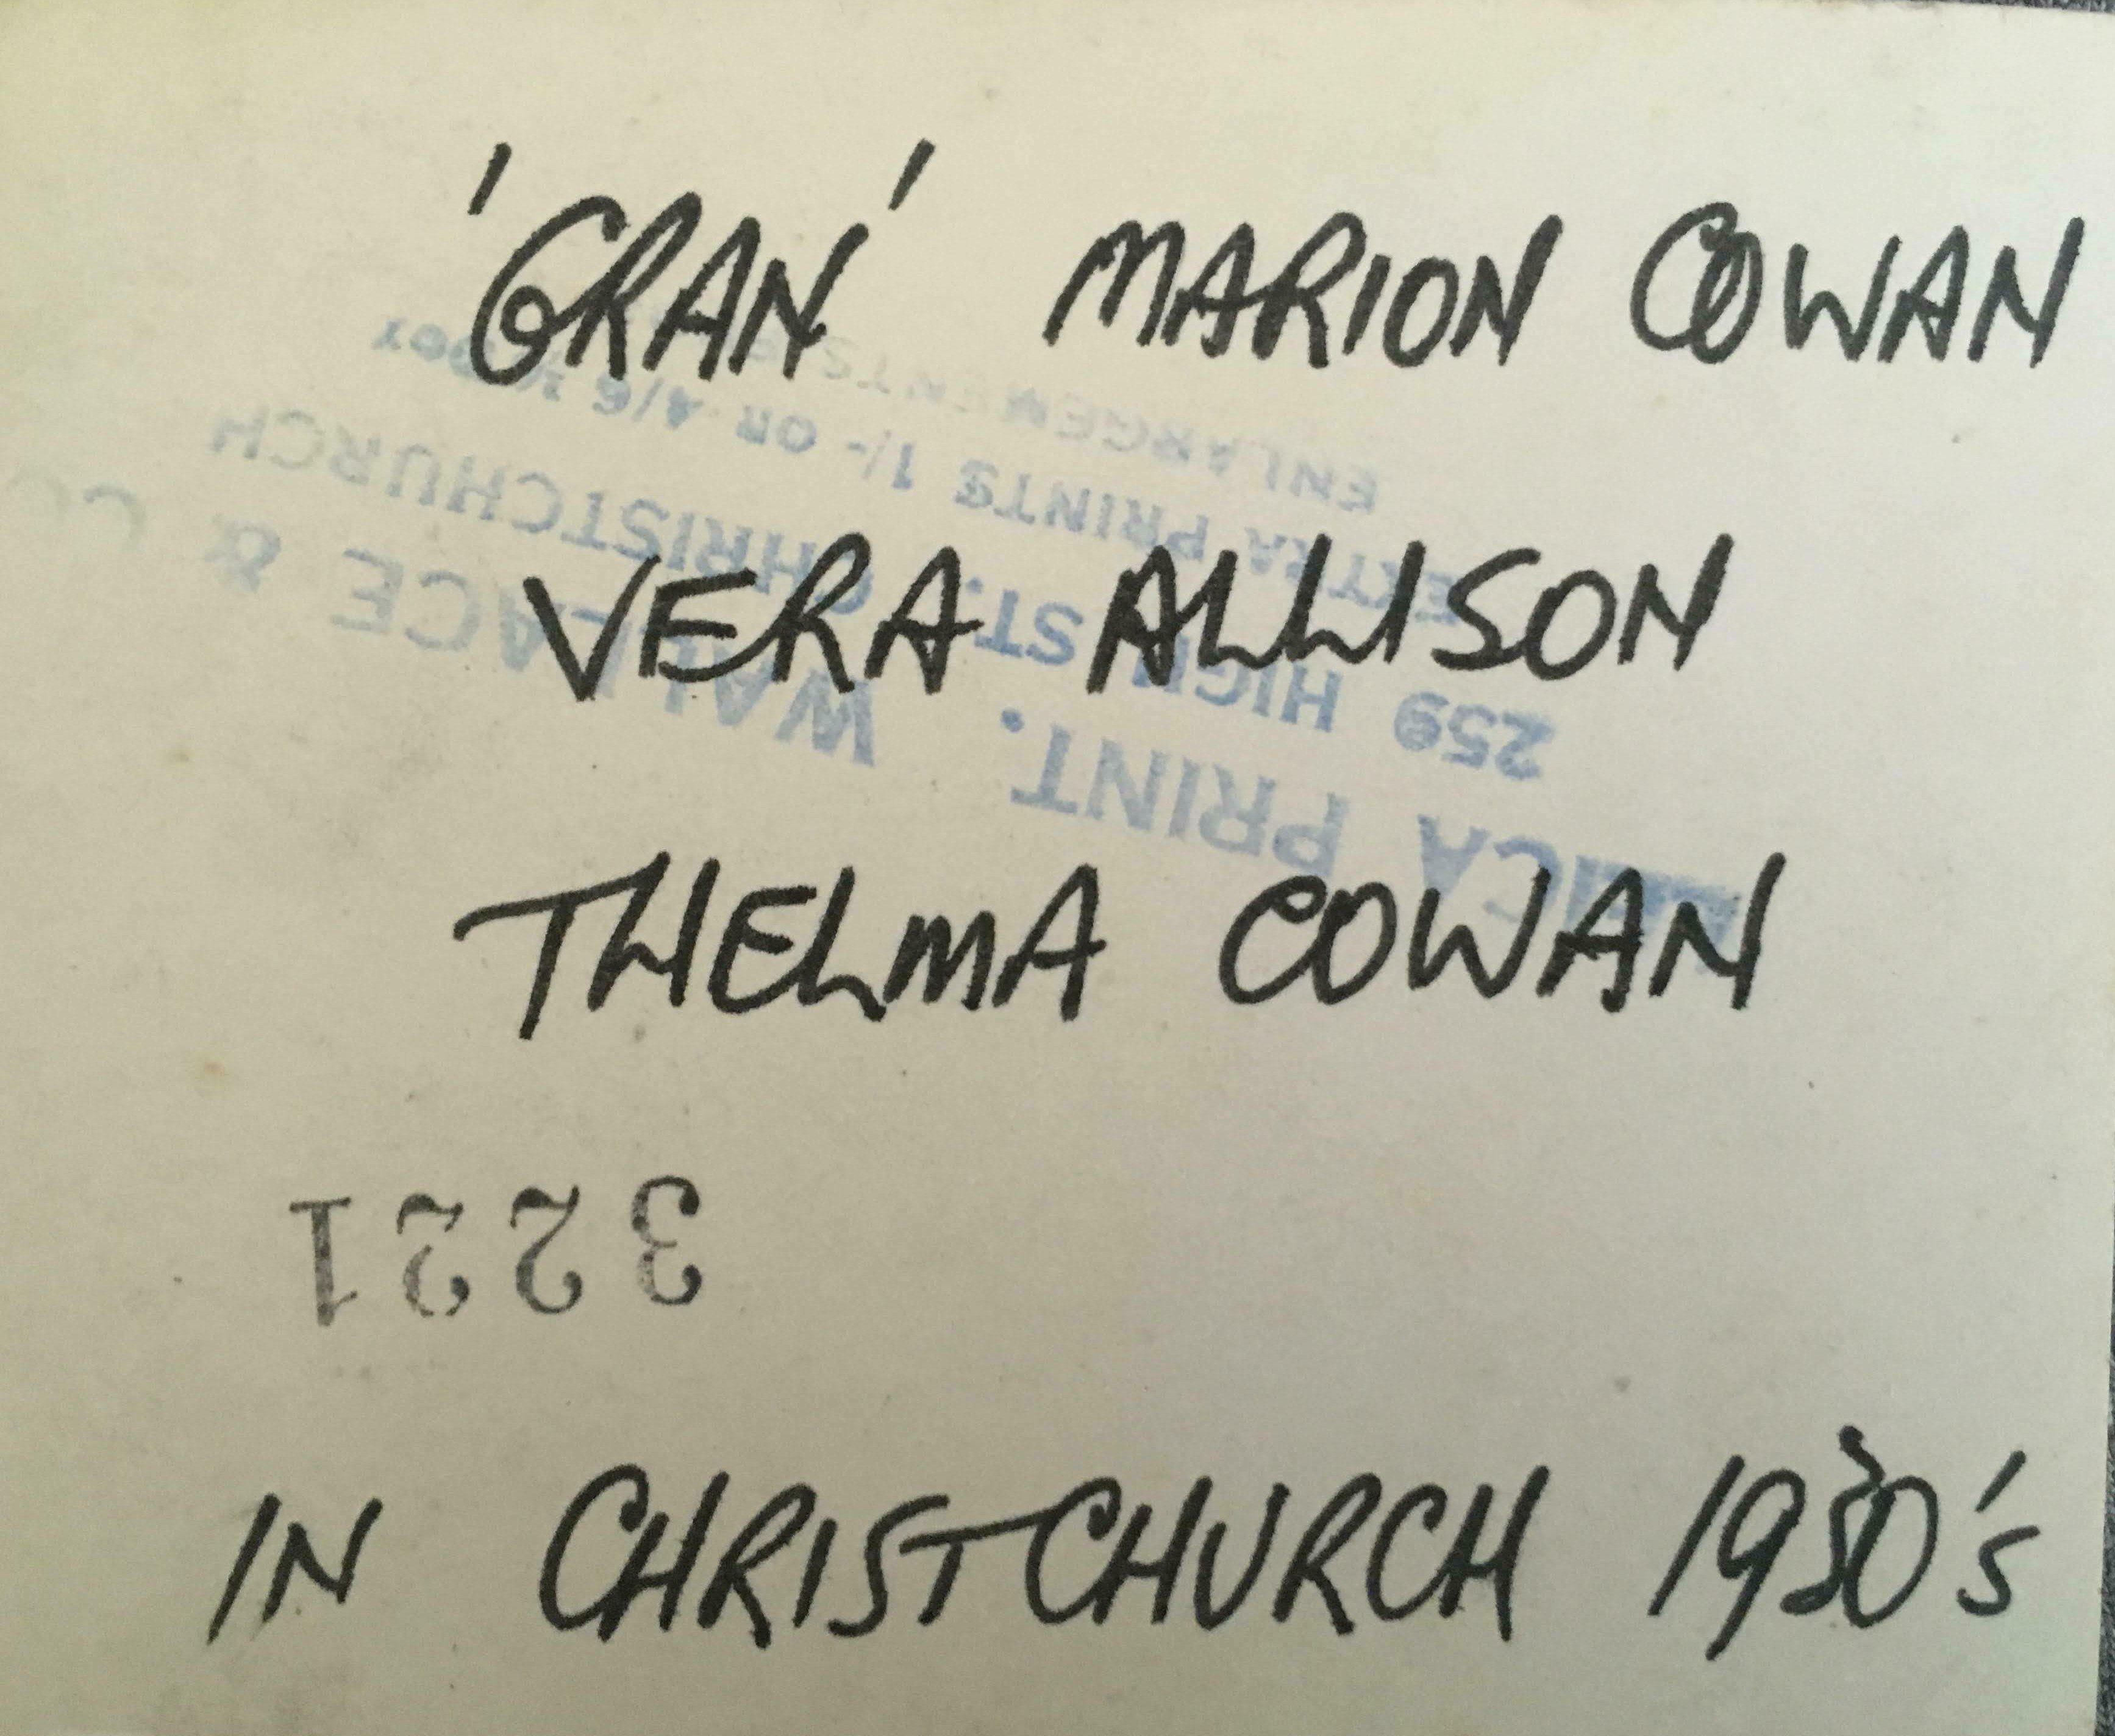 'GRAN' MARION COWAN
VERA ALLISON
THELMA COWAN
IN CHRISTCHURCH
3221
PRINT. WALLACE &
259 HIGH ST. CHRISTCHURCH
EXTRA PRINTS 1/- OR 4/6
ENLARGEMENTS